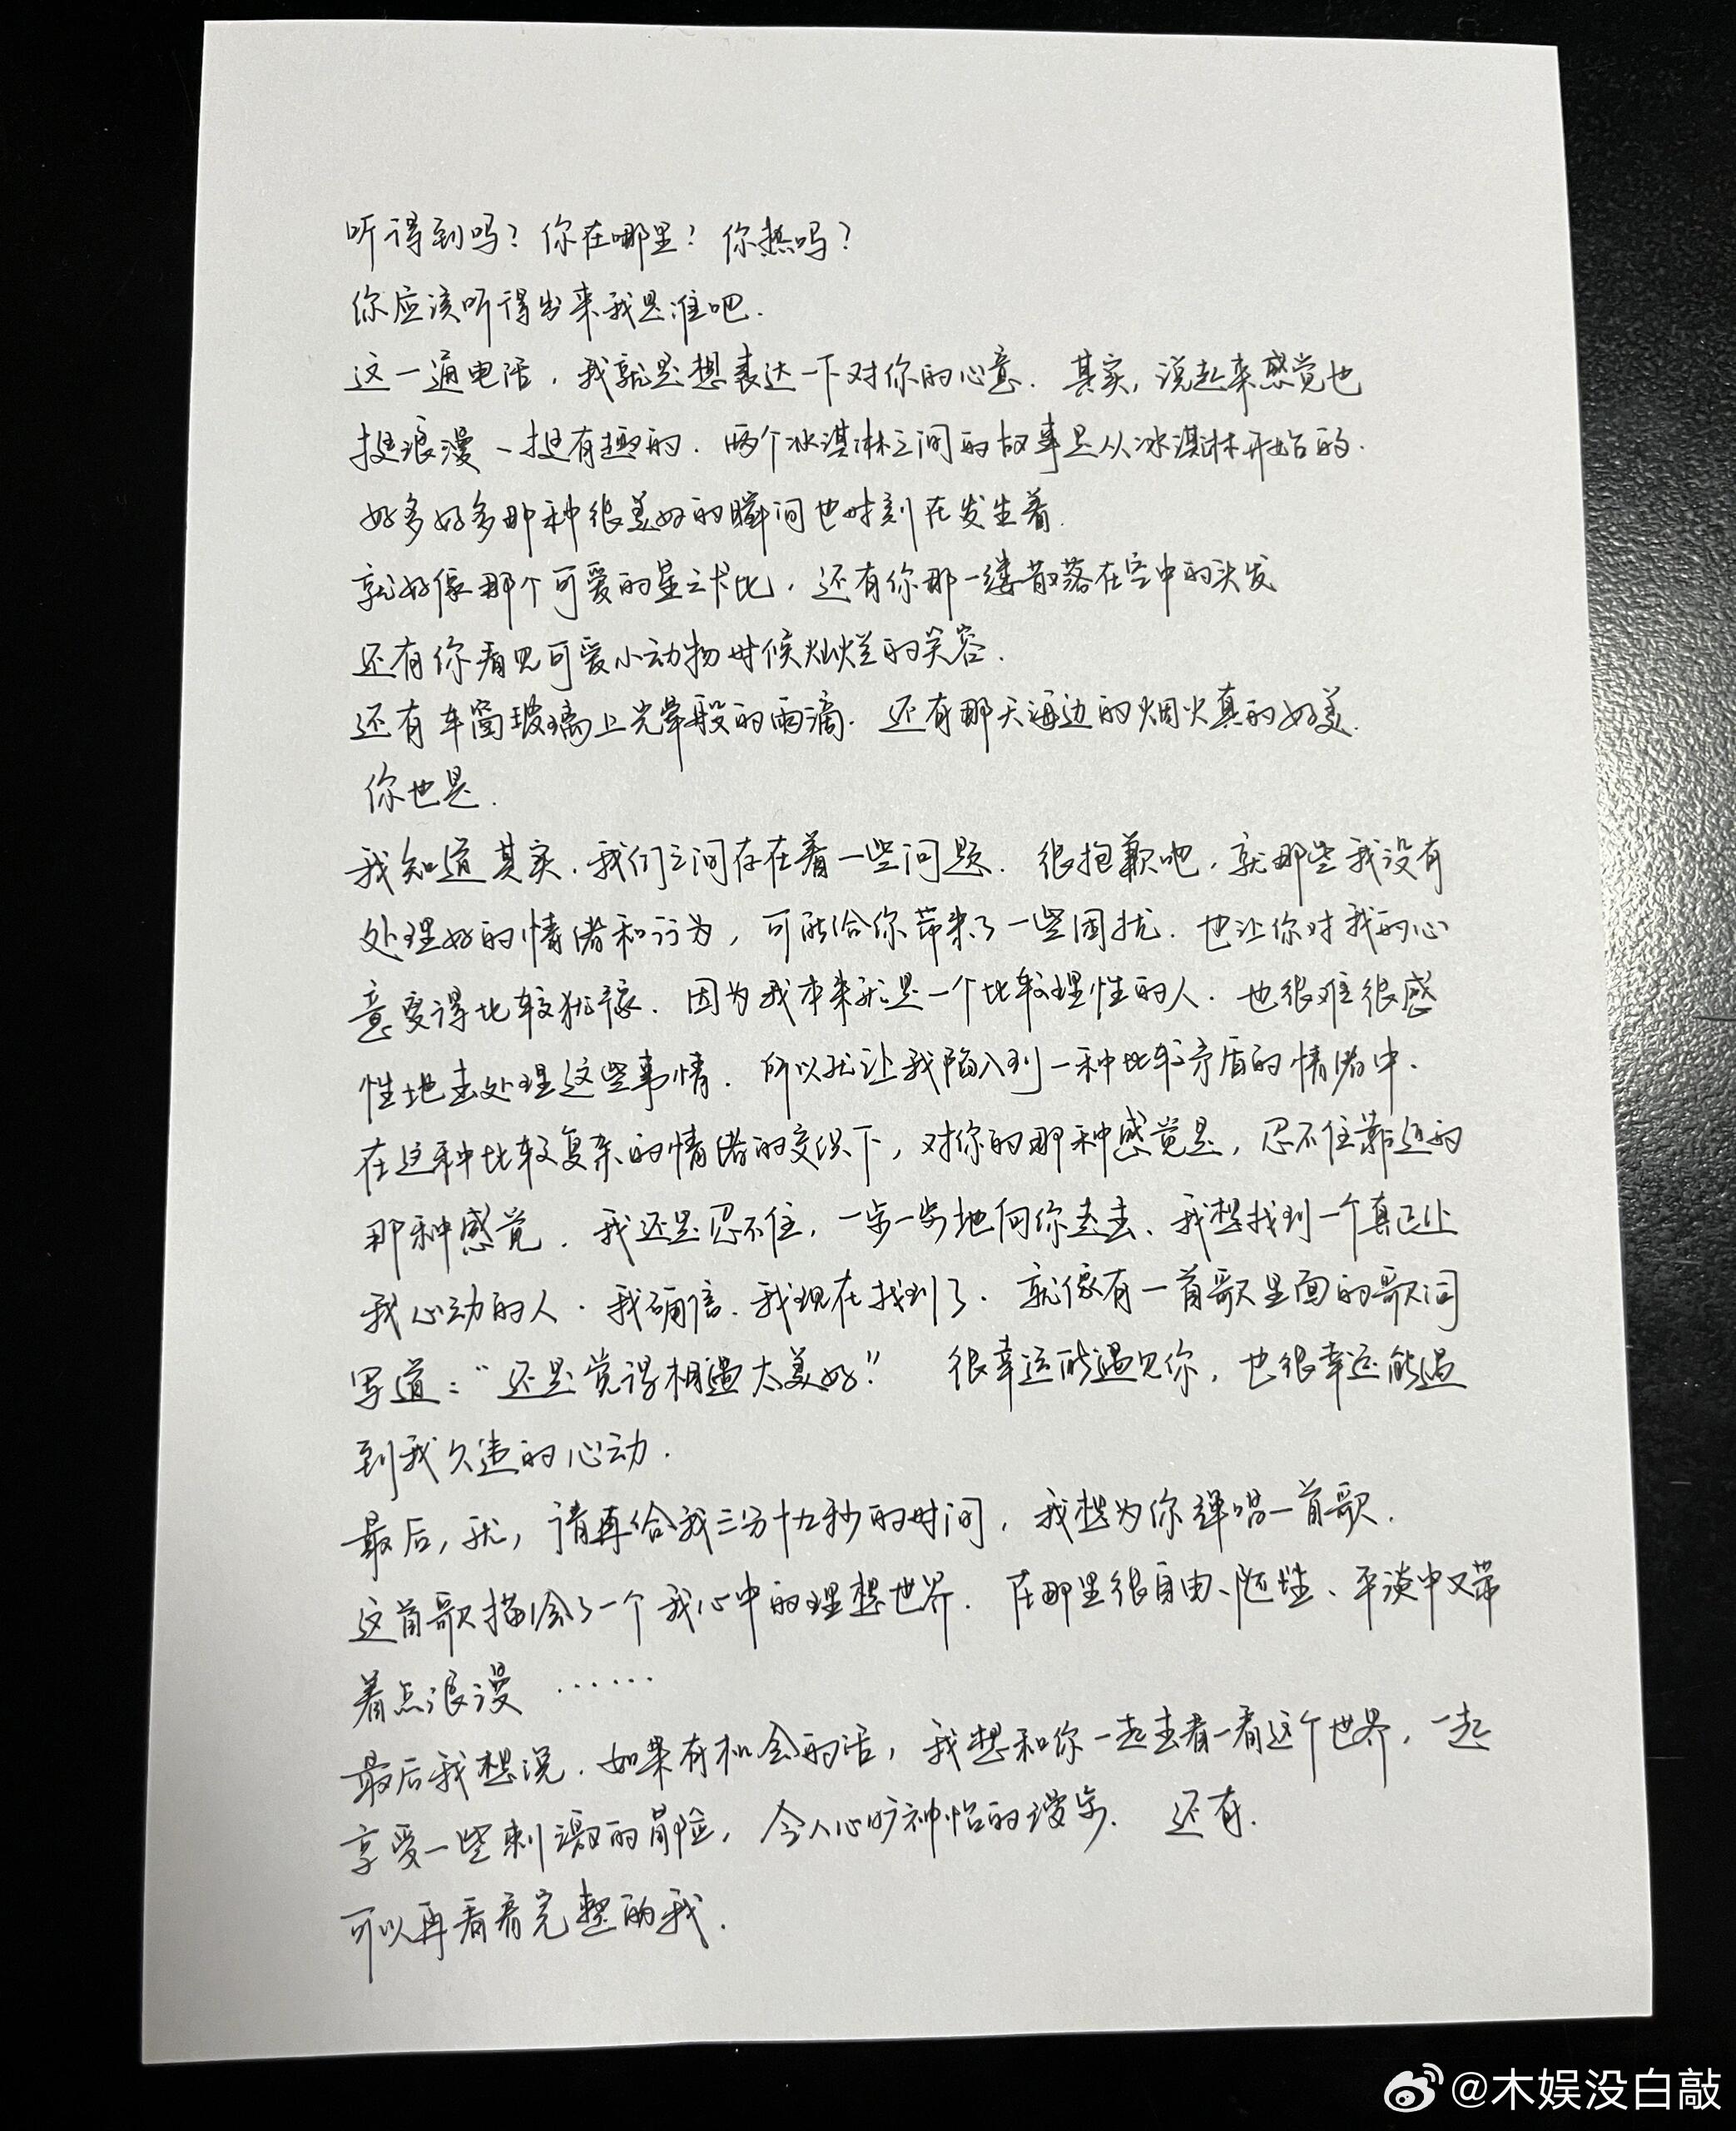 听得到吗？你在哪里？你热吗？
你应该听得出来我是谁吧.
这一通电话，我就是想表达一下对你的心意. 其实，说起来感觉也
挺浪漫、挺有趣的. 两个冰淇淋之间的故事是从冰淇淋开始的.
好多好多那种很美好的瞬间也时刻在发生着.
就好像那个可爱的星之卡比，还有你那一缕散落在空中的头发
还有你看见可爱小动物时候灿烂的笑容.
还有车窗玻璃上光晕般的雨滴. 还有那天海边的烟火真的好美.
你也是.
我知道其实，我们之间存在着一些问题. 很抱歉吧，就那些我没有
处理好的情绪和行为，可能给你带来了一些困扰. 也让你对我的心
意变得比较犹豫. 因为我本来就是一个比较理性的人. 也很难很感
性地去处理这些事情. 所以就让我陷入到一种比较矛盾的情绪中.
在这种比较复杂的情绪的交织下，对你的那种感觉是，忍不住靠近的
那种感觉. 我还是忍不住，一步一步地向你走去、我想找到一个真正让
我心动的人. 我确信、我现在找到了. 就像有一首歌里面的歌词
写道：“还是觉得相遇太美好” 很幸运能遇见你，也很幸运能遇
到我久违的心动.
最后，就，请再给我三分十九秒的时间，我想为你弹唱一首歌.
这首歌描绘了一个我心中的理想世界. 在那里很自由、随性、平淡中又带
着点浪漫 ……
最后我想说. 如果有机会的话，我想和你一起去看一看这个世界，一起
享受一些刺激的冒险，令人心旷神怡的漫步. 还有.
可以再看看完整的我.
@木娱没白敲